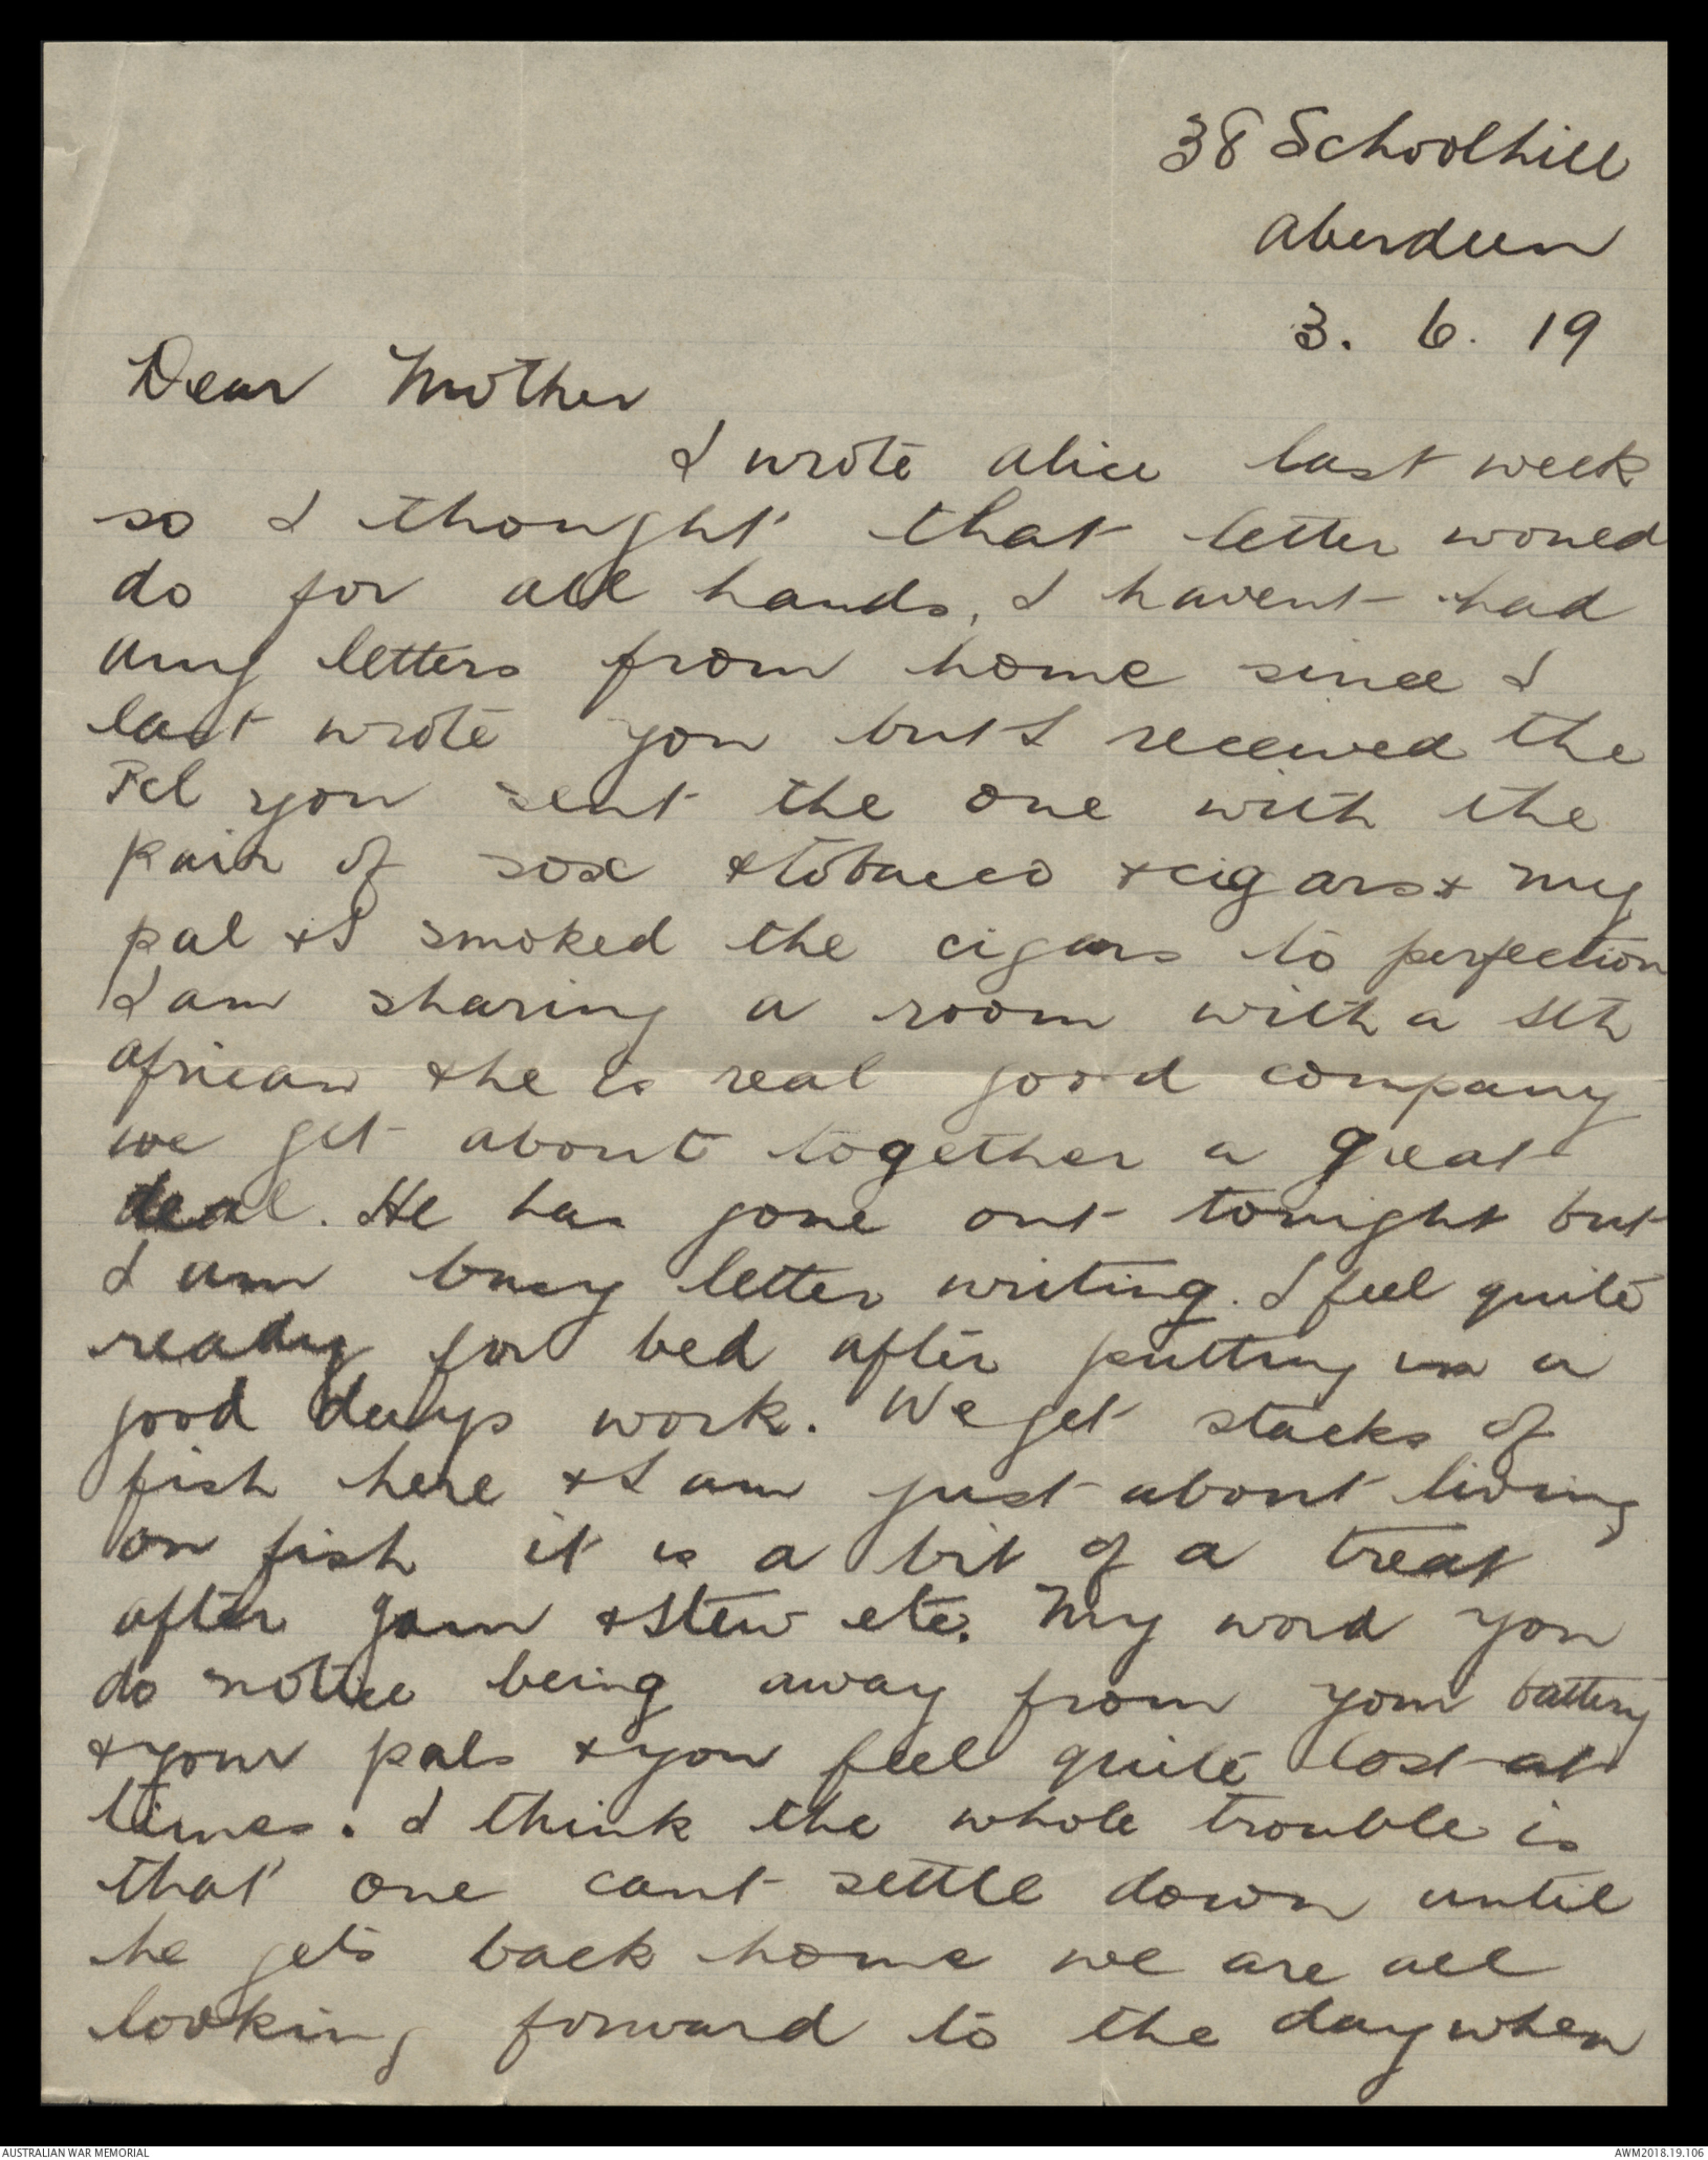 38 Schoolhill
Aberdeen
3. 6. 19
Dear Mother
I wrote Alice last week
so I thought that letter would
do for all hands, I havent had
any letters from home since I
last wrote you but I received the
Pcl you sent the one with the
pair of sox & tobacco & cigars & my
pal & I smoked the cigars to perfection
I am sharing a room with a Sth
African & he is real good company
we get about together a great
deal. He has gone out tonight but
I am busy letter writing. I feel quite
ready for bed after putting in a
good days work. We get stacks of
fish here & I am just about living
on fish it is a bit of a treat
after jam & stew etc. My word you
do notice being away from your battery
& your pals & you feel quite lost at
times. I think the whole trouble is
that one cant settle down until
he gets back home we are all
looking forward to the day when
AUSTRALIAN WAR MEMORIAL
AWM2018.19.106